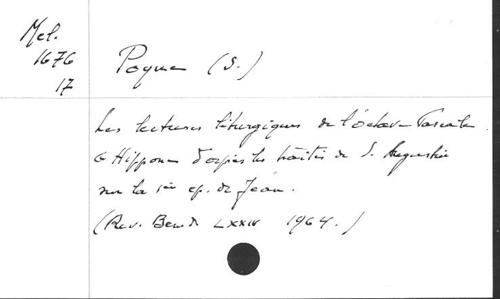 Mel.
1676
17
Poque (S.)
Les lectures liturgiques de l'Octave Pascale
à Hippone d'après les traités de S. Augustin
sur la 1ère ep. de Jean.
(Rev. Bened. LXXIV 1964.)